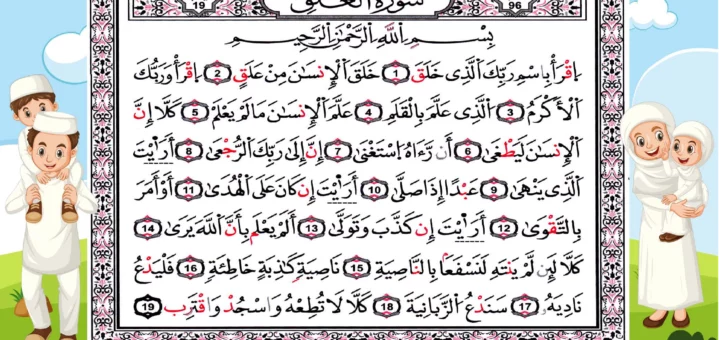 96 سُورَةُ الْعَلَقِ 19
بِسْمِ اللَّهِ الرَّحْمَٰنِ الرَّحِيمِ
إِقْرَأْ بِاسْمِ رَبِّكَ الَّذِى خَلَقَ 1 خَلَقَ الْإِنسَٰنَ مِنْ عَلَقٍ 2 إِقْرَأْ وَرَبُّكَ
الْأَكْرَمُ 3 الَّذِى عَلَّمَ بِالْقَلَمِ 4 عَلَّمَ الْإِنسَٰنَ مَا لَمْ يَعْلَمْ 5 كَلَّا إِنَّ
الْإِنسَٰنَ لَيَطْغَىٰ 6 أَن رَّءَاهُ اسْتَغْنَىٰ 7 إِنَّ إِلَىٰ رَبِّكَ الرُّجْعَىٰ 8 أَرَأَيْتَ
الَّذِى يَنْهَىٰ 9 عَبْدًا إِذَا صَلَّىٰ 10 أَرَأَيْتَ إِن كَانَ عَلَى الْهُدَىٰ 11 أَوْ أَمَرَ
بِالتَّقْوَىٰ 12 أَرَأَيْتَ إِن كَذَّبَ وَتَوَلَّىٰ 13 أَلَمْ يَعْلَم بِأَنَّ اللَّهَ يَرَىٰ 14
كَلَّا لَئِن لَّمْ يَنتَهِ لَنَسْفَعًا بِالنَّاصِيَةِ 15 نَاصِيَةٍ كَٰذِبَةٍ خَاطِئَةٍ 16 فَلْيَدْعُ
نَادِيَهُ 17 سَنَدْعُ الزَّبَانِيَةَ 18 كَلَّا لَا تُطِعْهُ وَاسْجُدْ وَاقْتَرِب 19